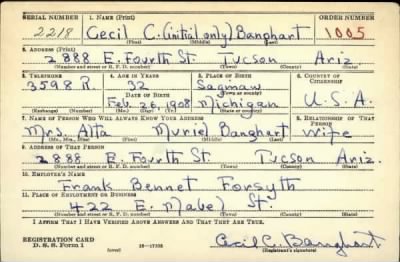 SERIAL NUMBER 1. NAME (Print) ORDER NUMBER
2218 Cecil C. (initial only) Banghart 1005
(First) (Middle) (Last)
2. ADDRESS (Print)
2888 E. Fourth St. Tucson Ariz.
(Number and street or R. F. D. number) (Town) (County) (State)
3. TELEPHONE 4. AGE IN YEARS 5. PLACE OF BIRTH 6. COUNTRY OF CITIZENSHIP
3598 R. 32 Saginaw
DATE OF BIRTH (Town or county)
Feb. 26, 1908 Michigan U.S.A.
(Exchange) (Number) (Mo.) (Day) (Yr.) (State or country)
7. NAME OF PERSON WHO WILL ALWAYS KNOW YOUR ADDRESS 8. RELATIONSHIP OF THAT PERSON
Mrs. Alta Muriel Banghart Wife
(Mr., Mrs., Miss) (First) (Middle) (Last)
9. ADDRESS OF THAT PERSON
2888 E. Fourth St. Tucson Ariz.
(Number and street or R. F. D. number) (Town) (County) (State)
10. EMPLOYER'S NAME
Frank Bennet Forsyth
11. PLACE OF EMPLOYMENT OR BUSINESS
422 E. Mabel St.
(Number and street or R. F. D. number) (Town) (County) (State)
I AFFIRM THAT I HAVE VERIFIED ABOVE ANSWERS AND THAT THEY ARE TRUE.
REGISTRATION CARD
D. S. S. Form 1 (over) 16—17105 Cecil C. Banghart
(Registrant's signature)